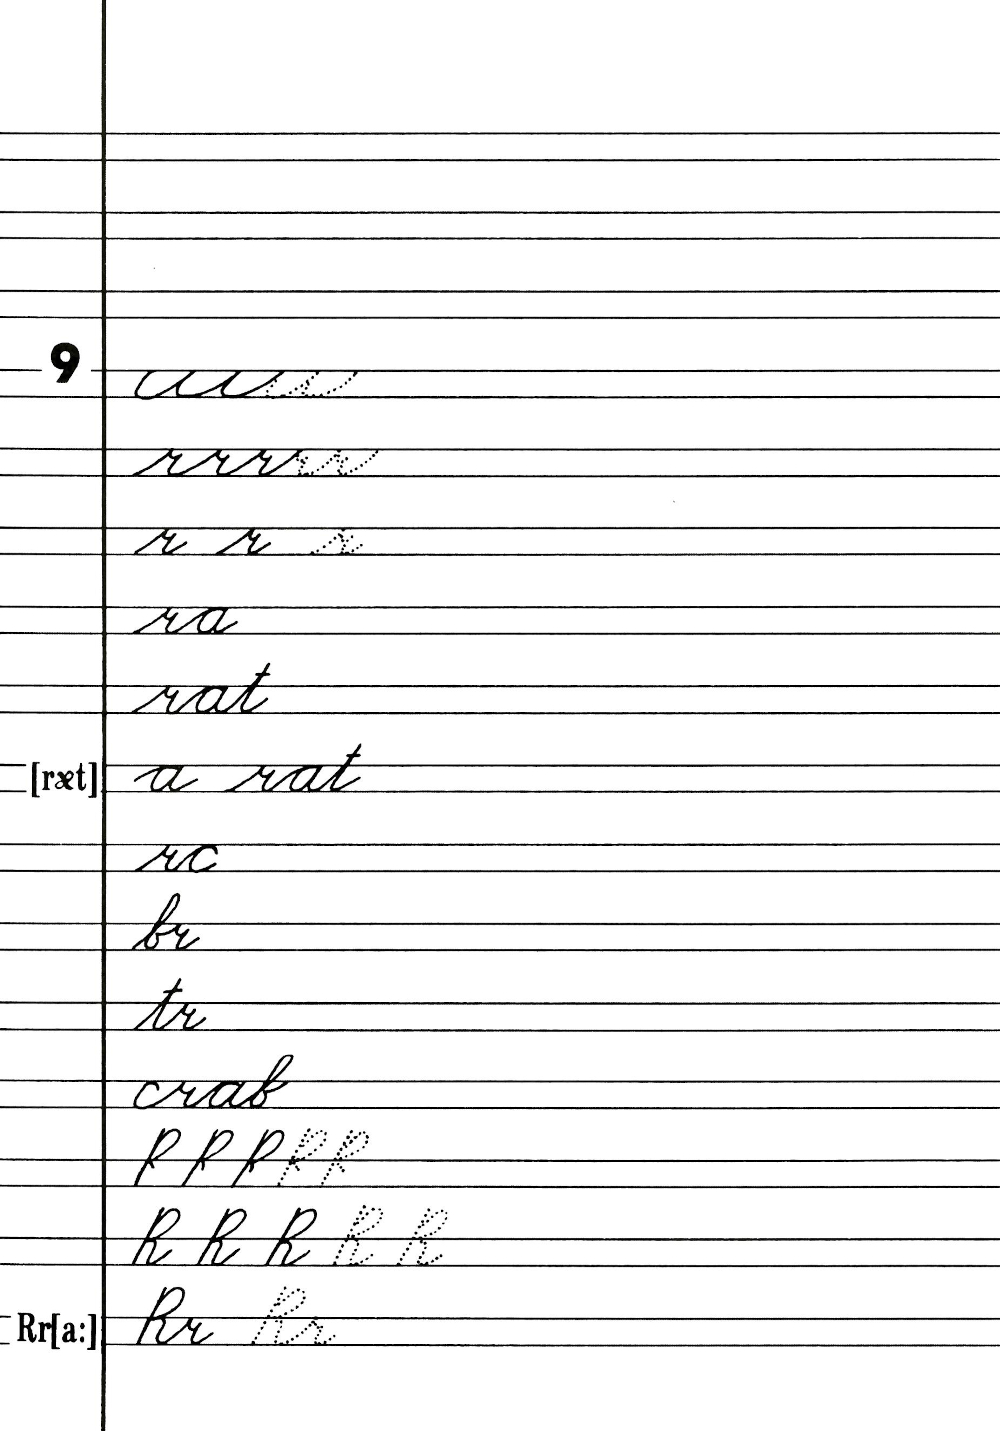 9
r r r r r
r r r
ra
rat
[ræt] a rat
rc
br
tr
crab
P P P R R
R R R R R
Rr[a:] Rr Rr